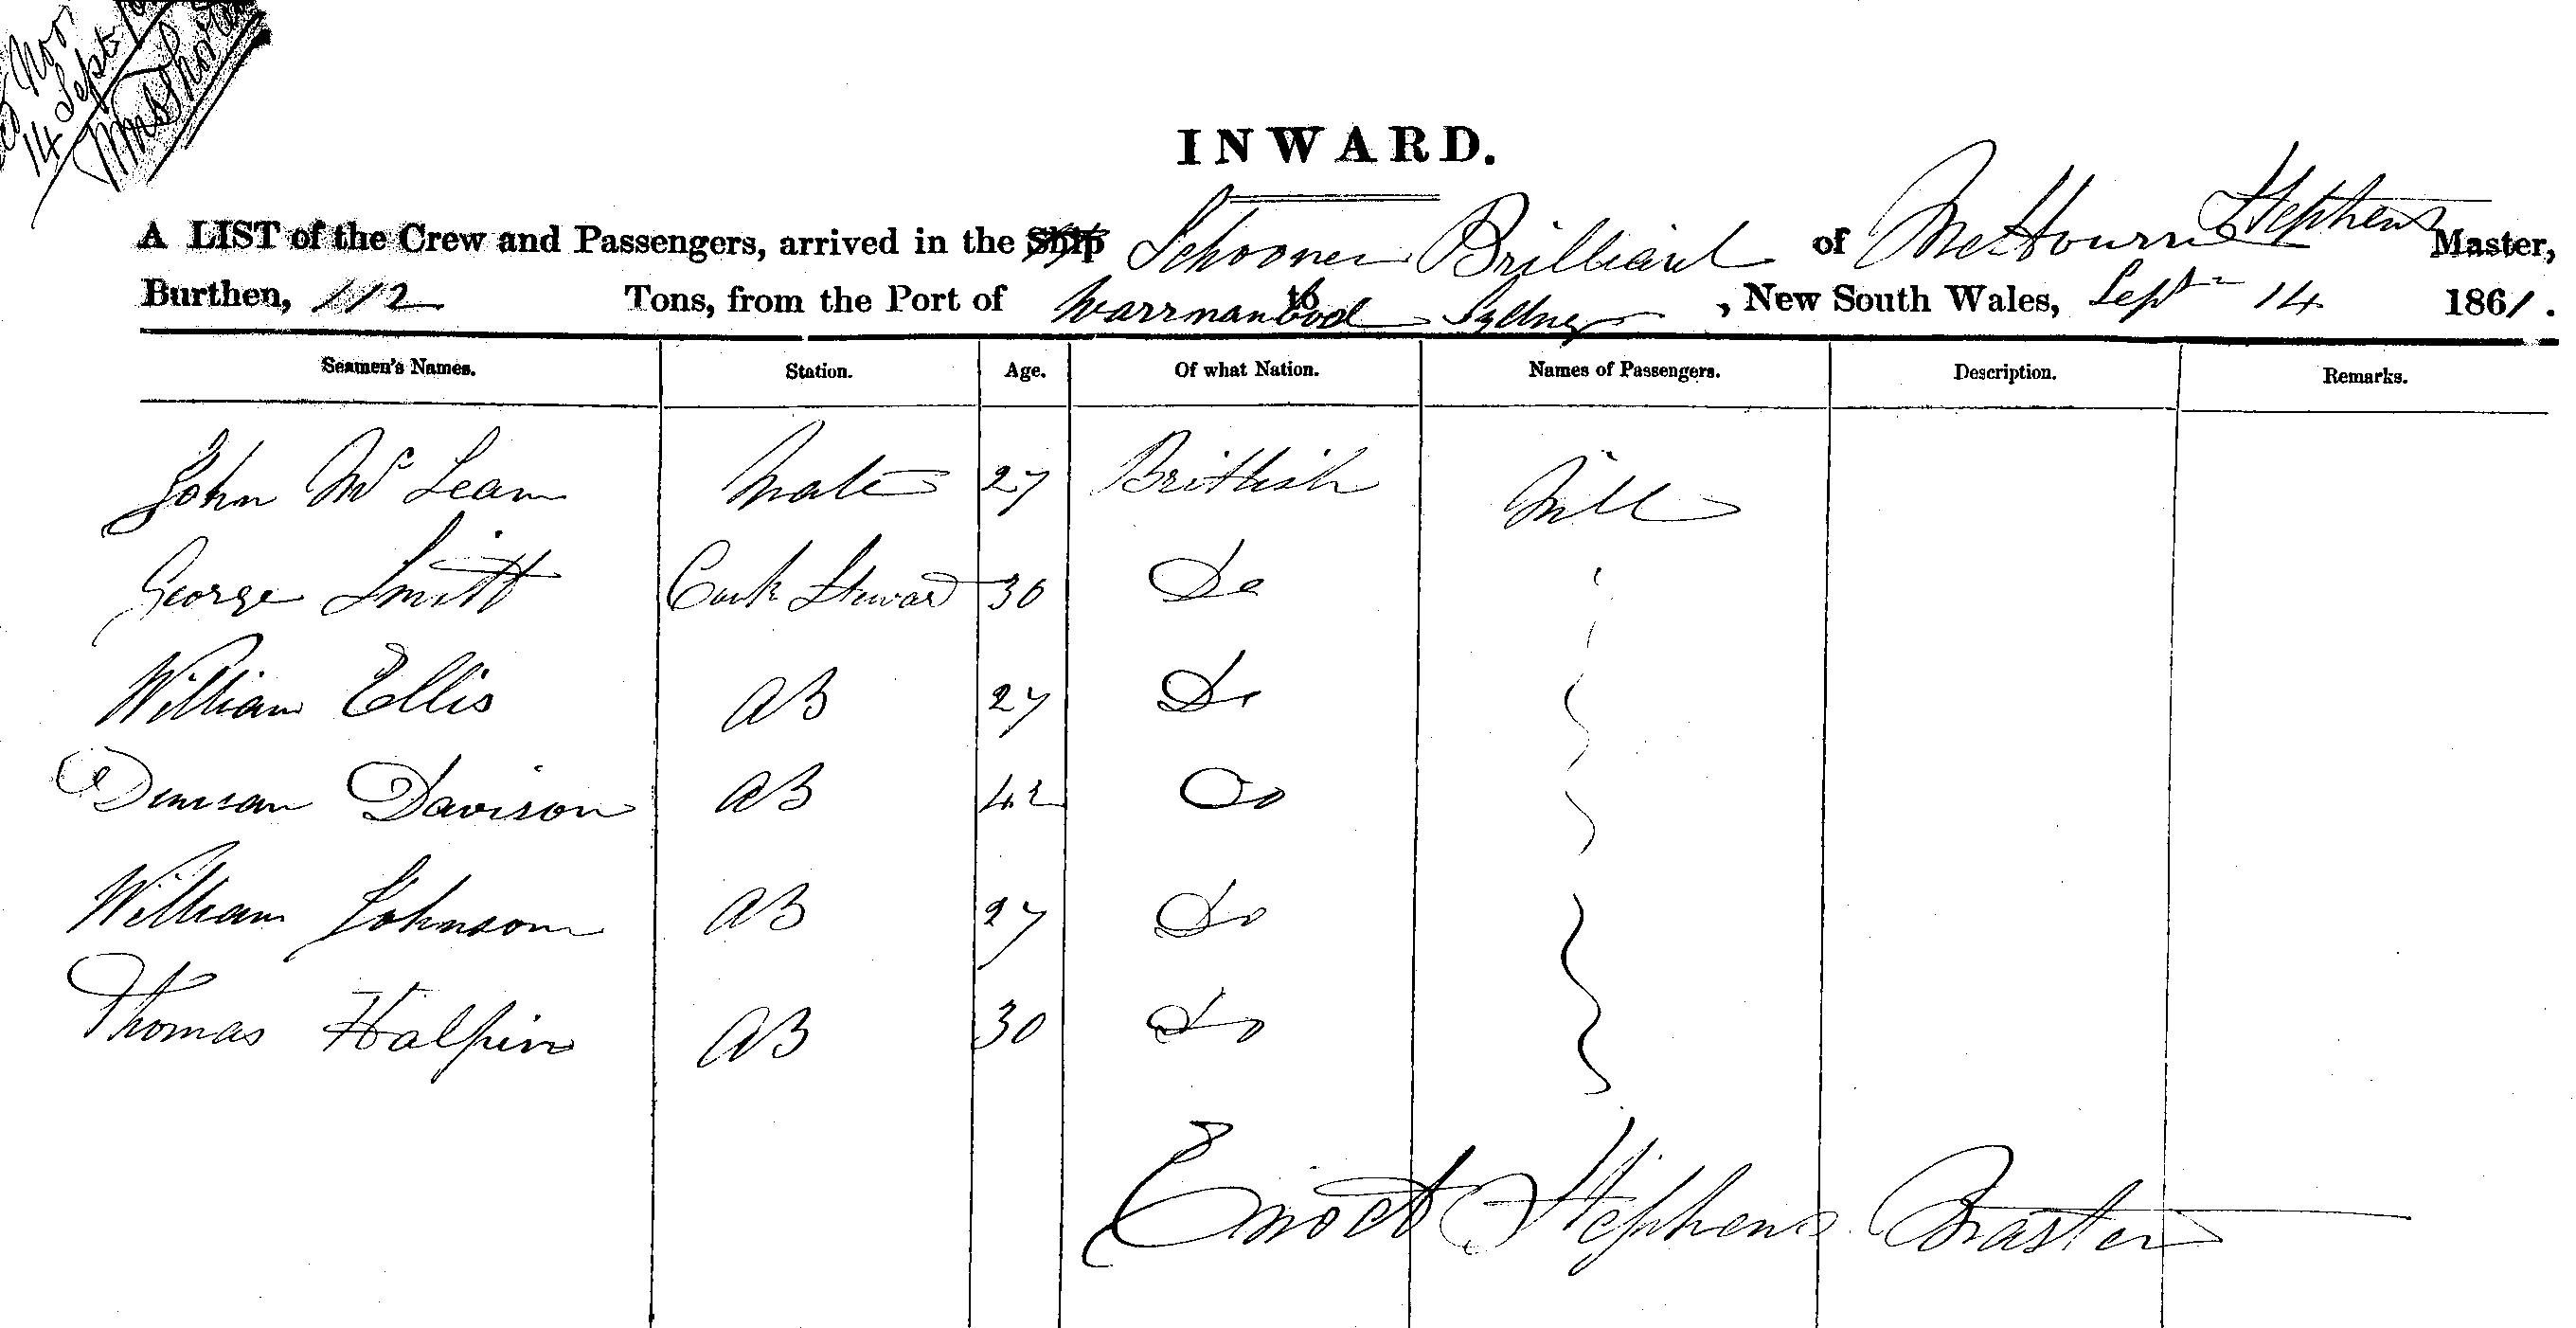 14 Sept
INWARD.
A LIST of the Crew and Passengers, arrived in the Ship Schooner Brilliant of Melbourne Stephens Master,
Burthen, 112 Tons, from the Port of Warrnambool to Sydney, New South Wales, Septr 14 1861.
Seamen's Names. Station. Age. Of what Nation. Names of Passengers. Description. Remarks.
John Mc Lean Mate 27 Brittish Nill
George Smitt Cook Steward 30 Do
William Ellis AB 27 Do
Duncan Davison AB 42 Do
William Johnson AB 27 Do
Thomas Halpin AB 30 Do
Enoch Stephens Master